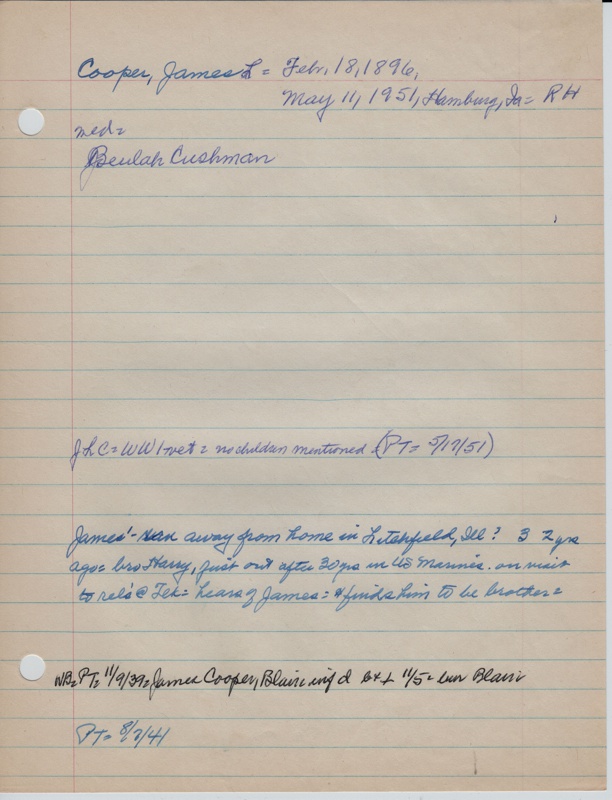 Cooper, James L = Febr, 18, 1896,
May 11, 1951, Hamburg, Ia = RH
med=
Beulah Cushman
JLC = WW1-vet = no children mentioned (PT= 5/17/51)
James'- ran away from home in Litchfield, Ill? 32 yrs
ago= bro Harry, just out after 30 yrs in US Marines. on visit
to rels @ Tek= hears of James= & finds him to be brother=
NB= PT= 11/9/39= James Cooper, Blair inj'd 11/5= Blair
PT= 8/7/41